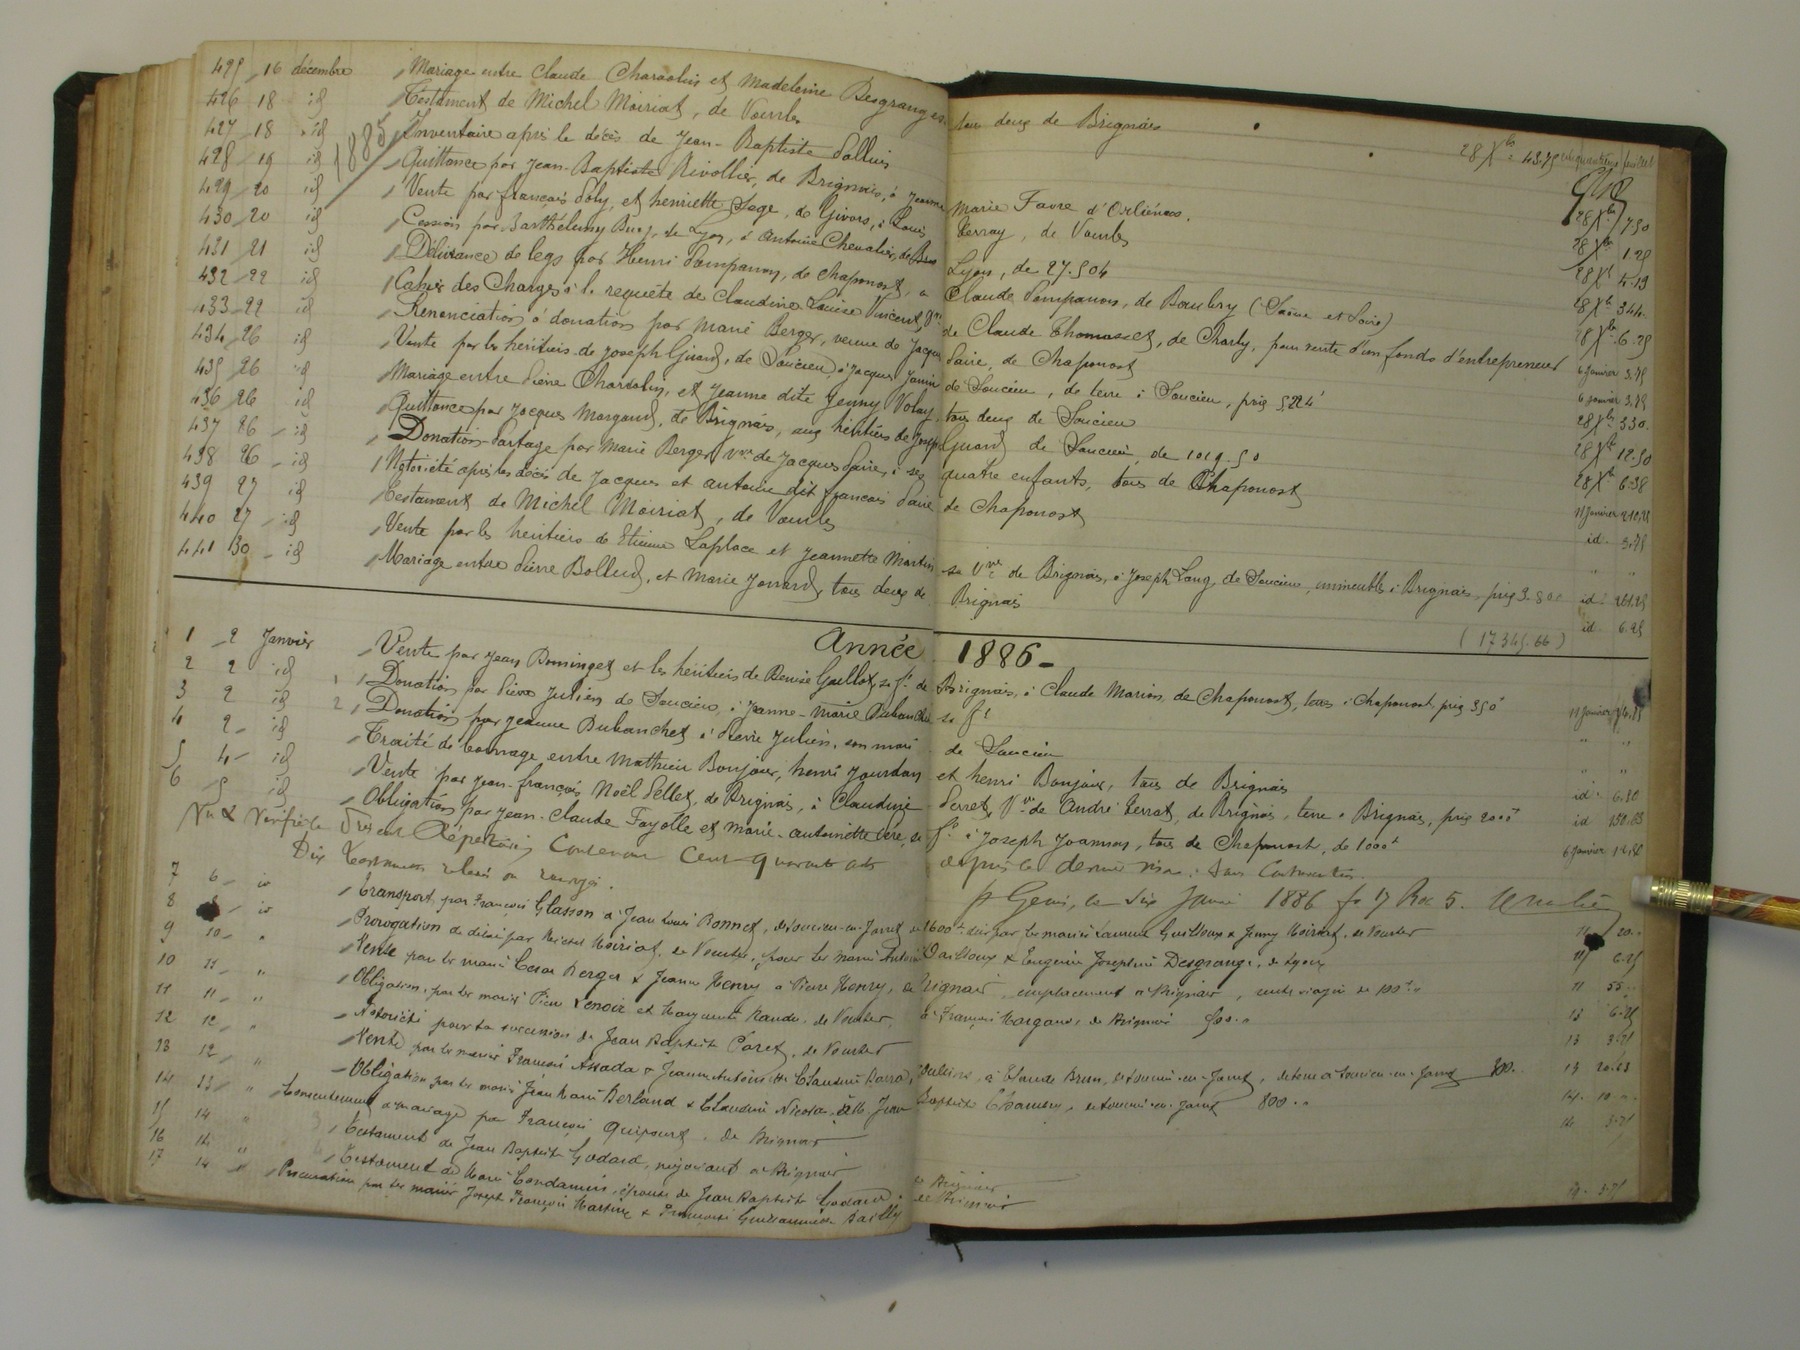 425 16 décembre Mariage entre Claude Charvolin et Madeleine Desgranges tous deux de Brignais
426 18 id Testament de Michel Moiriat, de Vourles 28 Xbre 43.75
427 18 id Inventaire après le décès de Jean-Baptiste
1885
428 19 id Quittance par Jean-Baptiste Rivollier, de Brignais, à Jeanne Marie Favre d'Orliénas. 28 Xbre 7.50
429 20 id Vente par françois Doly, et henriette Sage, de Givors, à Louis Terray, de Vourles 28 Xbre 1.25
430 20 id Cession par Barthélemy de Lyon, à Antoine Chevalier, de Lyon, de 27.504 28 Xbre 4.13
431 21 id Délivrance de legs par Henri Dompanon, de Chaponost, à Claude Dompanon, de (Saône et Loire) 28 Xbre 344.
432 22 id Cahier des Charges à la requête de Claudine Louise Vincent, Vve de Claude Thomasset, de Charly, pour vente d'un fonds d'entrepreneur 28 Xbre 6.25
433 22 id Renonciation à donation par Marie Berger, veuve de Jacques Paire, de Chaponost 6 janvier 3.75
434 26 id Vente par les héritiers de Joseph Girard, de Soucieu à Jacques Janin de Soucieu, de terre à Soucieu, prix 5224f 6 janvier 3.75
435 26 id Mariage entre Pierre Charvolin, et Jeanne dite Jenny Volay, tous deux de Soucieu 28 Xbre 330.
436 26 id Quittance par Jacques Margand, de Brignais, aux héritiers de Joseph Girard de Soucieu, de 1019.50 28 Xbre 12.50
437 26 id Donation-Partage par Marie Berger Vve de Jacques Paire, à ses quatre enfants, tous de Chaponost 28 Xbre 6.38
438 26 id Notoriété après les décès de Jacques et antoine dit françois Paire de Chaponost 11 janvier
439 27 id Testament de Michel Moiriat, de Vourles id. 3.75
440 27 id Vente par les héritiers de Etienne Laplace et Jeannette Martin sa Vve de Brignais, à Joseph Lang, de Soucieu, immeubles à Brignais, prix 3.500 id.
441 30 id Mariage entre Pierre Bollud, et Marie Jomard, tous deux de Brignais id. 6.25
(17345.66)
Année 1886-
1 2 Janvier Vente par Jean Dominget et les héritiers de Denise Gaillot, sa fe de Brignais, à Claude Marion, de Chaponost, terre à Chaponost, prix 350f 11 janvier
2 2 id 1 Donation par Pierre Julien de Soucieu, à Jeanne-Marie Dubanchet sa fe " "
3 2 id 2 Donation par Jeanne Dubanchet à Pierre Julien, son mari de Soucieu " "
4 2 id Traité de bornage entre Mathieu Bonjour, henri Jourdan et henri Bonjour, tous de Brignais id.
5 4 id Vente par Jean-françois Noël Pellet, de Brignais, à Claudine Perret, Vve de André Terrat, de Brignais, terre à Brignais, prix 2000f id 150.63
6 5 id Obligation par Jean-Claude Fayolle et Marie-antoinette sa fe à Joseph Joannon, tous de Chaponost, de 1000f 6 janvier
Vu & Vérifié le présent Répertoire Contenant Cent quarante depuis le dernier visa, sans Contravention.
Dix Testaments
St Genis, le six Janvier 1886 fo 17 Rce 5.
7 6 id Transport, par François Glasson à Jean Louis Bonnet, de Soucieu-en-Jarret, de 1600f dus par les mariés Laurent Guilloux & Jenny Moiriat, de Vourles 11 20..
8 8 id Prorogation de délai par Michel Moiriat, de Vourles, pour les mariés Antoine & Eugénie Joséphine Desgrange, de Lyon 11 6.25
9 10 " Vente par les mariés Cesar Berger & Jeanne Henry à Pierre Henry, de Brignais, emplacement à Brignais, rente viagère de 100f.. 11 55..
10 11 " Obligation, par les mariés Pierre Lenoir et Marguerite Nandu, de Vourles, à François Margand, de Brignais 500.. 13 6.25
11 11 " Notoriété pour la succession de Jean Baptiste Caret, de Vourles 13 3.75
12 12 " Vente par les mariés François Assada & Jeanne Antoinette Claudine à Claude Brun, de Soucieu-en-Jarret, de terre à Soucieu-en-Jarret 300.. 14 20.63
13 12 " Obligation par les mariés Jean Marie Berland & Claudine Nicolas, à M. Jean Baptiste de Soucieu-en-Jarret 800.. 14. 10..
14 13 " Consentement à mariage par François Quipourt, de Brignais 14 3.75
15 14 " Testament de Jean Baptiste Godard, négociant à Brignais
16 14 " Testament de Marie Condamin, épouse de Jean Baptiste Godard, de Brignais
17 14 " Procuration par les mariés Joseph François Martin & Bailly de Brignais 19. 3.75